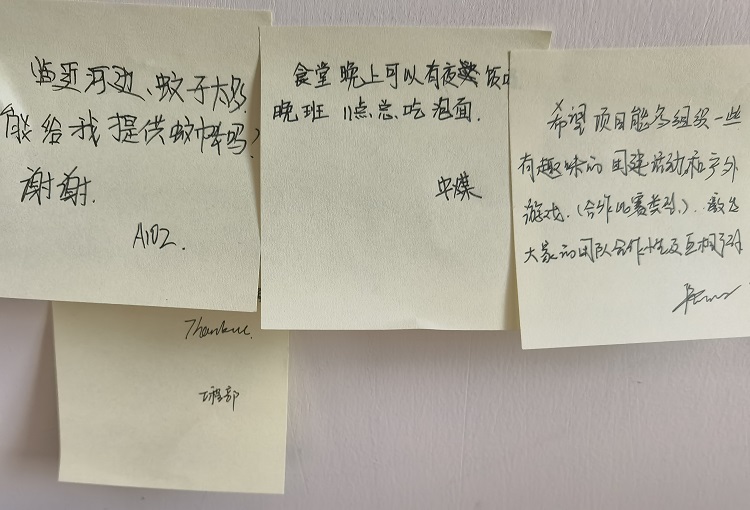 临近河边、蚊子太多
能给我提供蚊帐吗？
谢谢.
A102.
食堂晚上可以有夜 饭吗
晚班11点总吃泡面.
中煤
希望项目能多组织一些
有趣味的团建活动和户外
游戏.（合作比赛类型）.
大家的团队合作性及互相
Thank
工程部